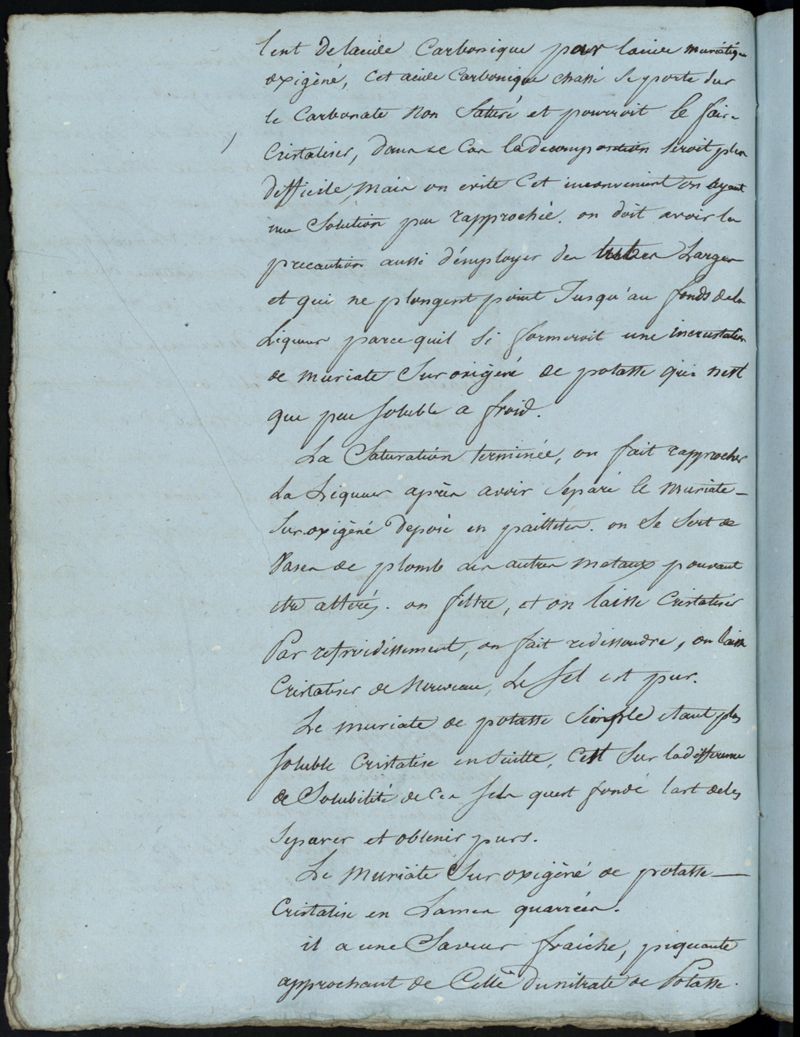 lent de lacide Carbonique par lacide muriatique
oxigèné, Cet acide Carbonique chassé se porte sur
le Carbonate Non Saturé et pourroit le faire
Cristaliser, dans ce Cas la decomposition seroit plus
difficile, mais on evite Cet inconvenient en ayant
une Solution peu rapprochée. on doit avoir la
precaution aussi d'employer des tubes Larges
et qui ne plongent point Jusqu'au fonds de la
Liqueur parce quil si formeroit une incrustation
de muriate Suroxigené de potasse qui nest
que peu soluble a froid.
La Saturation terminée, on fait rapprocher
La Liqueur après avoir separé le muriate
Suroxigèné deposé en paillettes. on se sert de
Vases de plomb les autres metaux pouvant
etre altérés. on filtre, et on laisse Cristaliser
Par refroidissement, on fait redissoudre, on laisse
Cristaliser de Nouveau, Le sel est pur.
Le muriate de potasse simple etant plus
soluble Cristalise ensuitte, Cest sur la difference
de Solubilité de Ces sels quest fondé lart de les
separer et obtenir purs.
Le muriate Suroxigèné de potasse
Cristalise en Lames quarrées.
il a une Saveur fraiche, piquante
approchant de Celle du nitrate de Potasse.